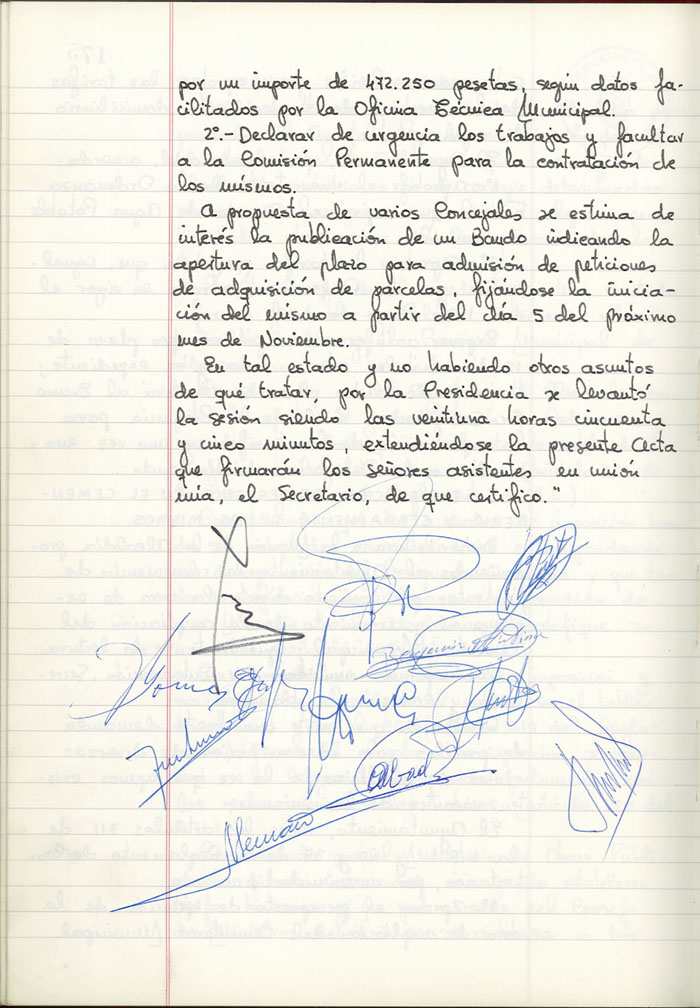 por un importe de 472.250 pesetas, según datos fa-
cilitados por la Oficina Técnica Municipal.
2º.- Declarar de urgencia los trabajos y facultar
a la Comisión Permanente para la contratación de
los mismos.
A propuesta de varios Concejales se estima de
interés la publicación de un Bando indicando la
apertura del plazo para admisión de peticiones
de adquisición de parcelas, fijándose la inicia-
ción del mismo a partir del día 5 del próximo
mes de Noviembre.
En tal estado y no habiendo otros asuntos
de qué tratar, por la Presidencia se levantó
la sesión siendo las veintiuna horas cincuenta
y cinco minutos, extendiéndose la presente Acta
que firmarán los señores asistentes en unión
mía, el Secretario, de que certifico."
Benjamin
Tomas
Abad
Aleman